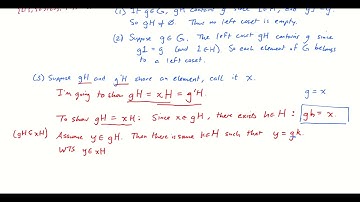 (1) If g∈G, gH contains g since 1∈H, and g1 = g.
So gH ≠ Ø. Thus no left coset is empty.
(2) Suppose g∈G. The left coset gH contains g since
g1 = g (and 1∈H). So each element of G belongs
to a left coset.
(3) Suppose gH and g'H share an element, call it x.
I'm going to show gH = xH = g'H.
g = x
To show gH = xH: Since x∈gH, there exists h∈H : gh = x
(gH⊆xH) Assume y∈gH. Then there is some k∈H such that y = gk.
WTS y∈xH